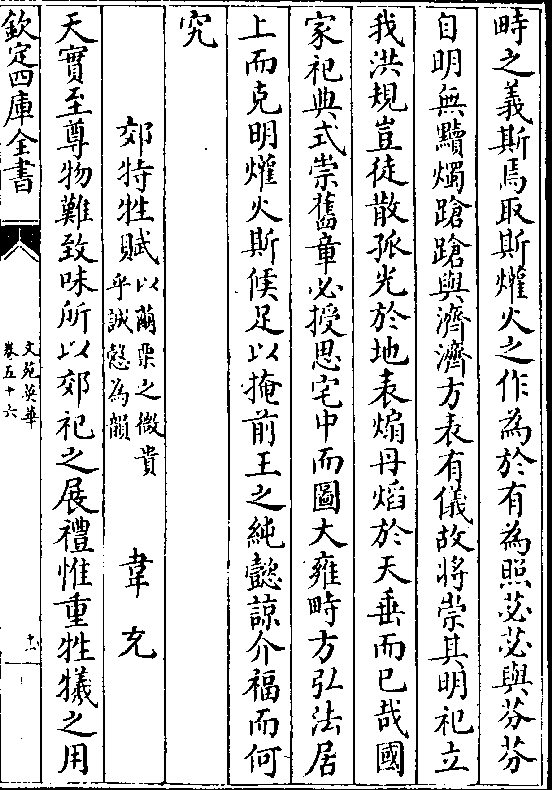 畤之義斯焉取斯爟火之作為於有為照苾苾與芬芬
自明無黷燭蹌蹌與濟濟方表有儀故將崇其明祀立
我洪規豈徒散孤光於地表煽丹熖於天垂而已哉國
家祀典式崇舊章必授思宅中而圖大雍畤方弘法居
上而克明爟火斯候足以掩前王之純懿諒介福而何
究
郊特牲賦以繭栗之微貴乎誠慤為韻 韋充
天實至尊物難致味所以郊祀之展禮惟重牲犧之用
欽定四庫全書
文苑英華
卷五十六
十一